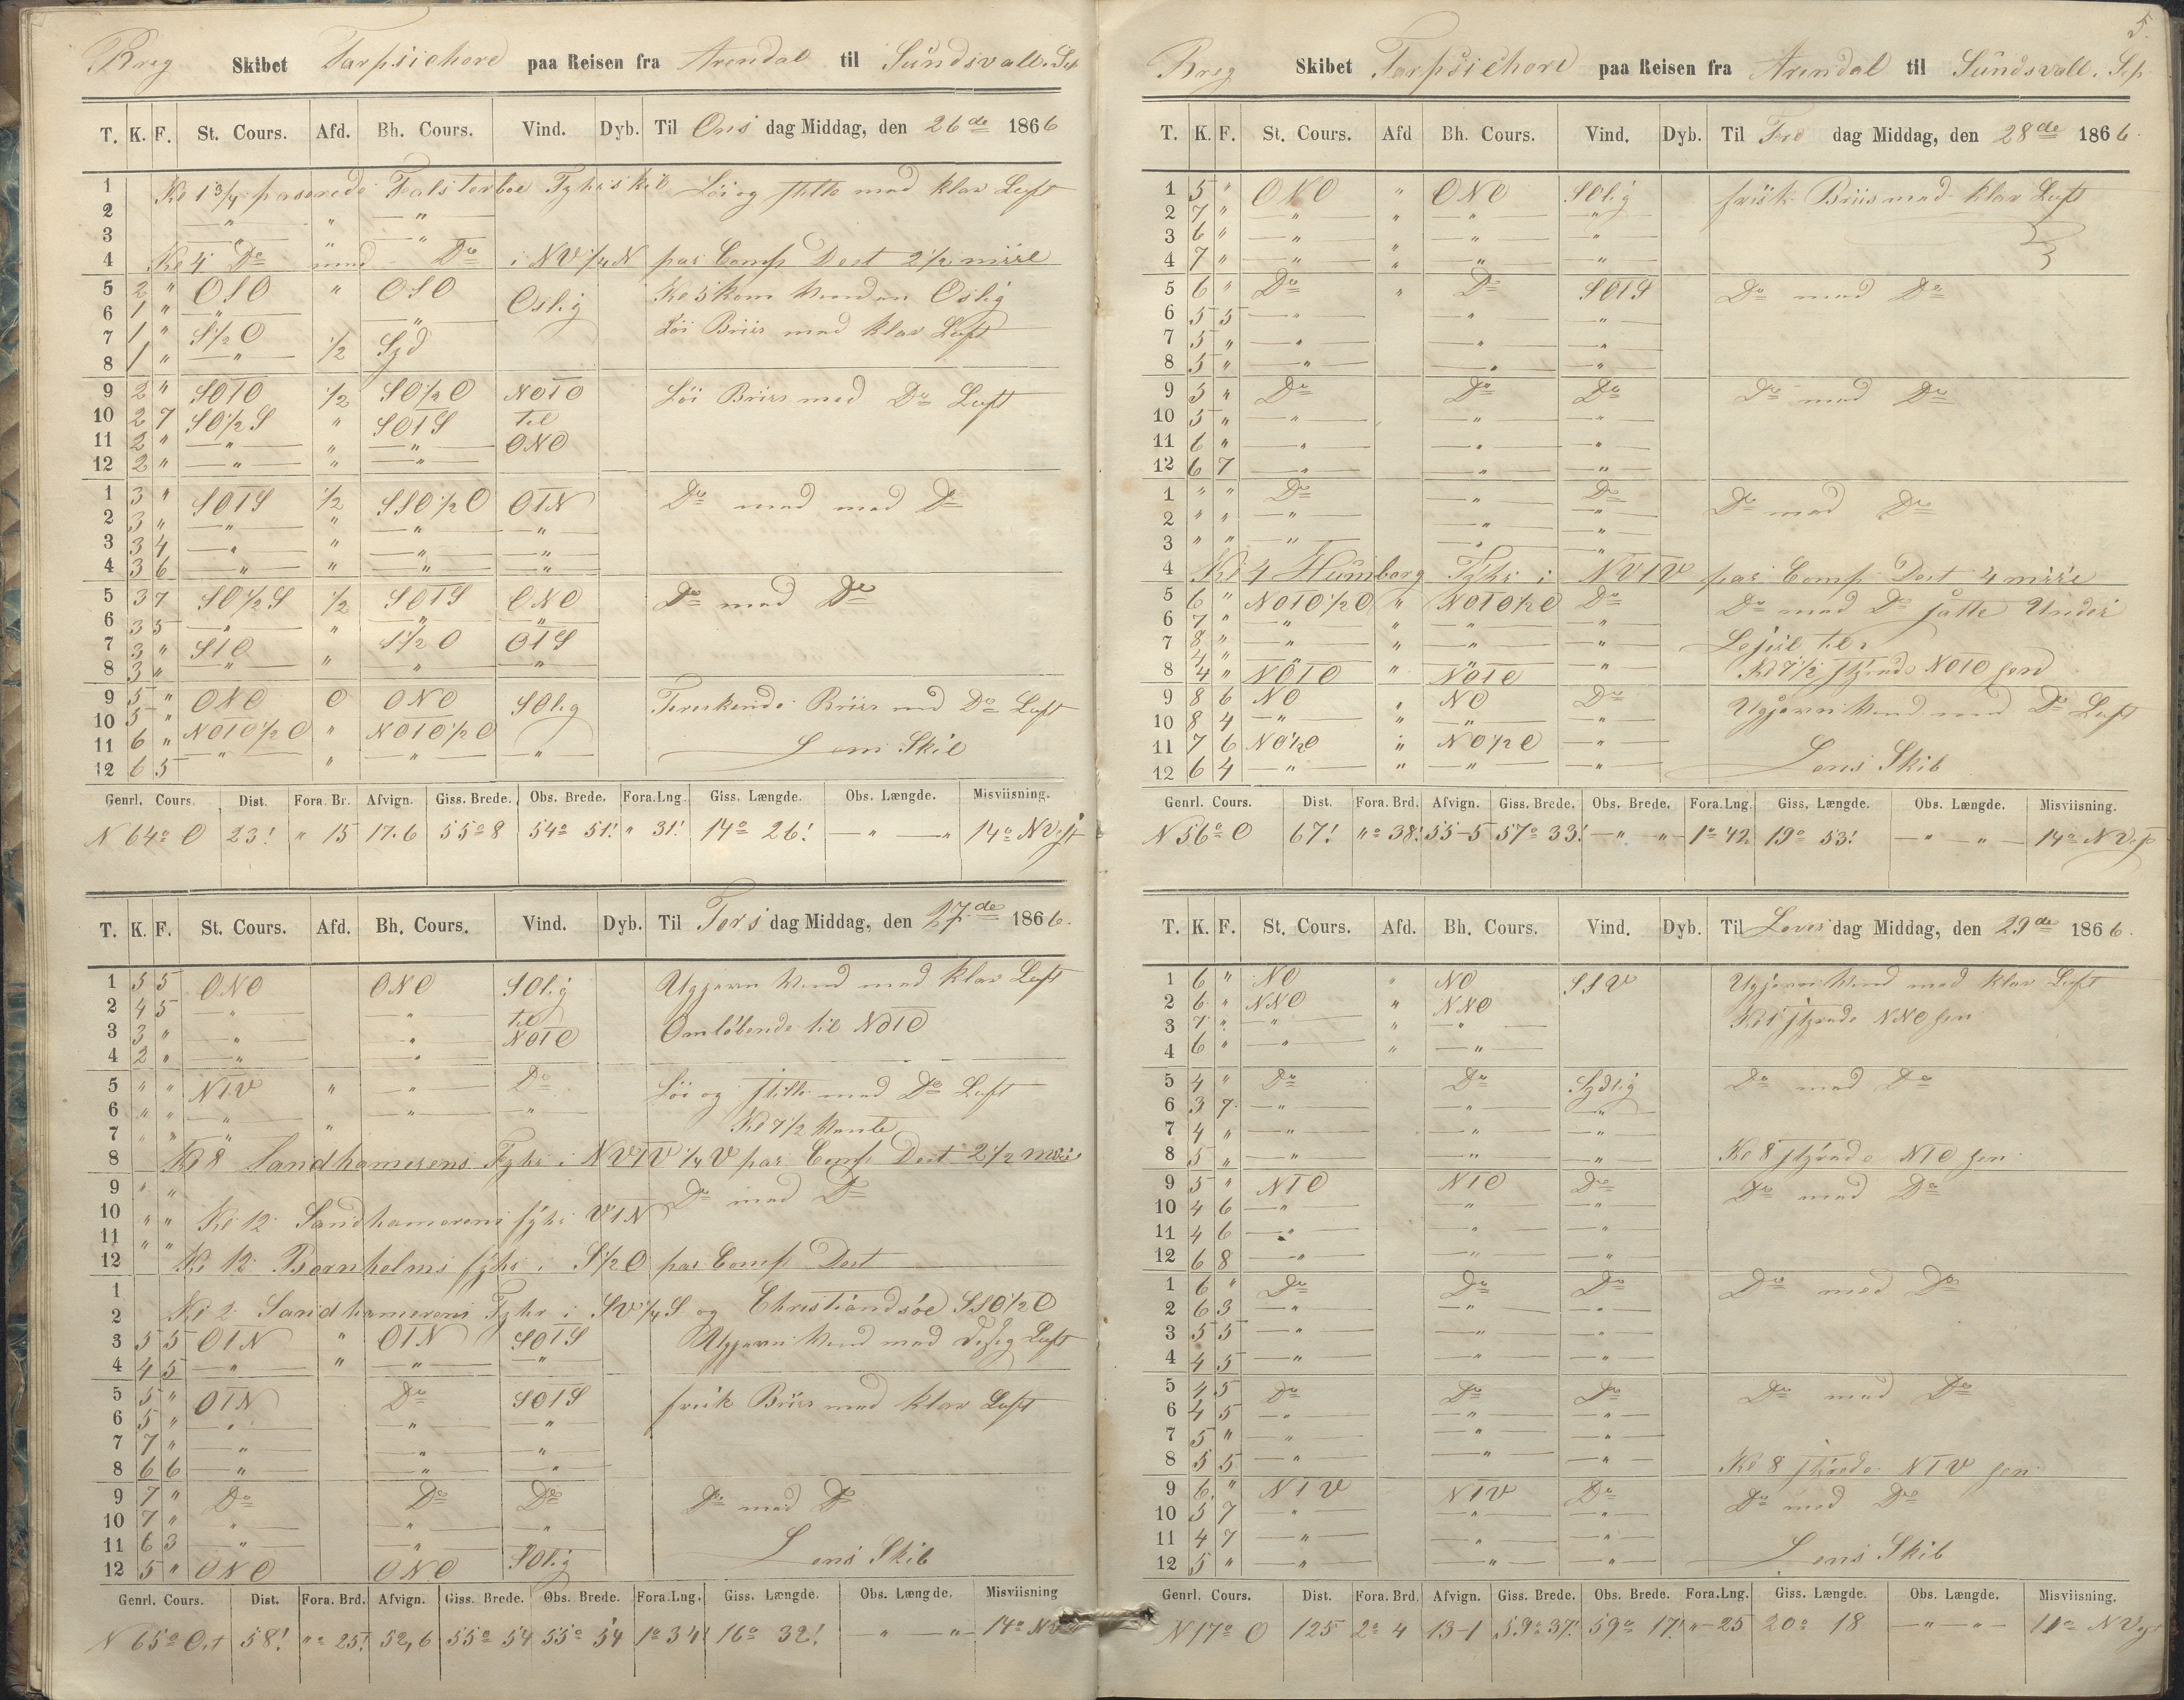 Brig Skibet Tarpsichore paa Reisen fra Arendal til Sundsvall. Sep
T. K. F. St. Cours. Afd. Bh. Cours. Vind. Dyb. Til Ons dag Middag, den 26de 1866
1 Kl 1 3/4 paserede Falsterboe Fyhrskib Löi og stille med klar Luft
2 " " "
3 " " "
4 Kl 4 Do med Do i NV 1/4 N par Comp Dest 2 1/2 miil
5 2 " OSO " OSO Oslig Kl 5 kom Vinden Oslig
6 1 " " "
7 1 " S 1/2 O Löi Briis med klar Luft
8 1 " " 1/2 Syd
9 2 " SOTO 1/2 SO 1/2 O NOTO Löi Briis med Do Luft
10 2 7 SO 1/2 S " SOTS til
11 2 " " " " ONO
12 2 " " " "
1 3 " SOTS 1/2 SSO 1/2 O OTN Do med med Do
2 3 " " " " "
3 3 4 " " " "
4 3 6 " " " "
5 3 7 SO 1/2 S 1/2 SOTS ONO Do med Do
6 3 5 " " " "
7 3 " STO S 1/2 O OTS
8 3 " " " " "
9 5 " ONO O ONO SOlig Ferskende Briis med Do Luft
10 5 " NOTO 1/2 O " NOTO 1/2 O
11 6 " " " " " Lens Skib
12 6 5 " "
Genrl. Cours. Dist. Fora. Br. Afvign. Giss. Brede. Obs. Brede. Fora.Lng. Giss. Længde. Obs. Længde. Misviisning.
N 64o O 23! " 15 17.6 55o 8 54o 51! " 31! 14o 26! " " 14o NVst
T. K. F. St. Cours. Afd. Bh. Cours. Vind. Dyb. Til Tors dag Middag, den 27de 1866.
1 5 5 ONO ONO SOlig Ugjevn Vind med klar Luft
2 4 5 " " til
3 3 " " " NOTO Omløbende til NOTO
4 2 " " "
5 " " NTV " " Do Löi og stille med Do Luft
6 " " " " "
7 " " " " Kl 7 1/2 Vente
8 Kl 8 Sandhamerens Fyhr i NVTV 1/4 V par Comp Dest 2 1/2 miil
9 " " Do med Do
10 " " Kl 12 Sandhamerens fyhr VTN
11 " "
12 Kl 12 Bornholms fyhr i S 1/2 O par Comp Dest
1
2 Kl 2 Sandhamerens Fyhr i SV 1/4 S og Christiandsöe SSO 1/2 O
3 5 5 OTN " OTN SOTS Ugjevn Vind med disig Luft
4 4 5 " " " "
5 5 " OTN Do SOTS frisk Briis med klar Luft
6 5 " " " "
7 7 " " " "
8 6 6 " " "
9 7 " Do Do Do Do med Do
10 7 " " " "
11 6 3 " " " Lens Skib
12 5 " ONO ONO SOlig
Genrl. Cours. Dist. Fora. Brd. Afvign. Giss. Brede. Obs. Brede. Fora.Lng. Giss. Længde. Obs. Længde. Misviisning
N 65o Ost 58! "o 25! 52,6 55o 54 55o 54 1o 34! 16o 32! " " 14o NV
5.
Brig Skibet Tarpsichore paa Reisen fra Arendal til Sundsvall. Sep
T. K. F. St. Cours. Afd Bh. Cours. Vind. Dyb. Til Fre dag Middag, den 28de 1866.
1 5 " ONO " ONO SOlig frisk Briis med klar Luft
2 7 " " " " "
3 6 " " " "
4 7 " " " " "
5 6 " Do " Do SOTS Do med Do
6 5 5 " " "
7 5 " " " "
8 5 " " " "
9 5 " Do Do Do Do med Do
10 5 " " " "
11 6 " " " "
12 6 7 " " "
1 " " Do " Do Do med Do
2 " " " " "
3 " " " " "
4 Kl 4 Humborg Fyhr i NVTV par Comp Dest 4 miil
5 6 " NOTO 1/2 O " NOTO 1/2 O Do Do med Do satte Under
6 7 " " " " "
7 8 " " " " " Lejsil til
8 4 " NOTO " NOTO " Kl 7 1/2 styrede NOTO hen
9 8 6 NO " NO Do Ugjevn Vind med Do Luft
10 8 4 " " " "
11 7 6 NO 1/2 O " NO 1/2 O " Lens Skib
12 6 4 " " " "
Genrl. Cours. Dist. Fora. Brd. Afvign. Giss. Brede. Obs. Brede. Fora.Lng. Giss. Længde. Obs. Længde. Misviisning.
N 56o O 67! "o 38! 55-5 57o 33! " " 1o 42 19o 53! " " 14o NVst
T. K. F. St. Cours. Afd. Bh. Cours. Vind. Dyb. Til Löver dag Middag, den 29de 1866.
1 6 " NO " NO SSV Ugjevn Vind med klar Luft
2 6 " NNO " NNO
3 7 " " " " Kl 1 styrede NNO hen
4 6 " " " "
5 4 " Do Do Sydlig Do med Do
6 3 7 " " "
7 4 " " " "
8 5 " " " " Kl 8 styrede NTO hen
9 5 " NTO NTO Do Do med Do
10 4 6 " " "
11 4 6 " " "
12 6 8 " " "
1 6 " Do Do Do Do med Do
2 6 3 " " "
3 5 5 " " "
4 4 5 " " "
5 4 5 Do Do Do Do med Do
6 4 5 " " "
7 5 " " " "
8 5 5 " " " Kl 8 styrede NTV hen
9 6 " NTV NTV Do Do med Do
10 5 7 " " "
11 4 7 " " " Lens Skib
12 5 " " " "
Genrl. Cours. Dist. Fora. Brd. Afvign. Giss. Brede. Obs. Brede. Fora.Lng. Giss. Længde. Obs. Længde. Misviisning.
N 17o O 125 2o 4 13-1 59o 37! 59o 17! "- 25 20o 18 " " 11o NVst